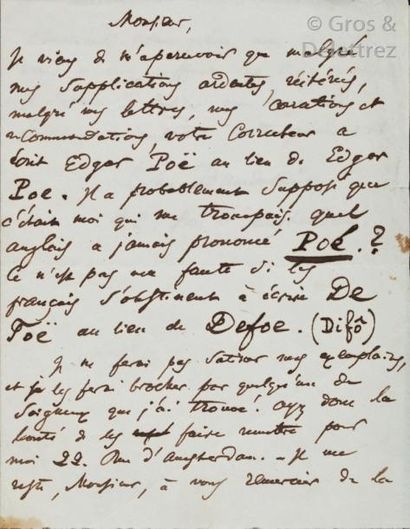 © Gros &
Delettrez
Monsieur,
Je viens de m'apercevoir que malgré
mes supplications ardentes, réitérées,
malgré mes lettres, mes corrections et
recommandations, votre Correcteur a
écrit Edgar Poë au lieu de Edgar
Poe. Il a probablement supposé que
c'était moi qui me trompais. quel
anglais a jamais prononcé Poé.?
Ce n'est pas ma faute si les
français s'obstinent à écrire De
Foë au lieu de Defoe. (Difô)
Je ne ferai pas satiner mes exemplaires,
et je les ferai brocher par quelqu'un de
soigneux que j'ai trouvé. ayez donc la
bonté de les faire remettre pour
moi 22. Rue d'amsterdam. – Je me
reste, Monsieur, à vous remercier de la